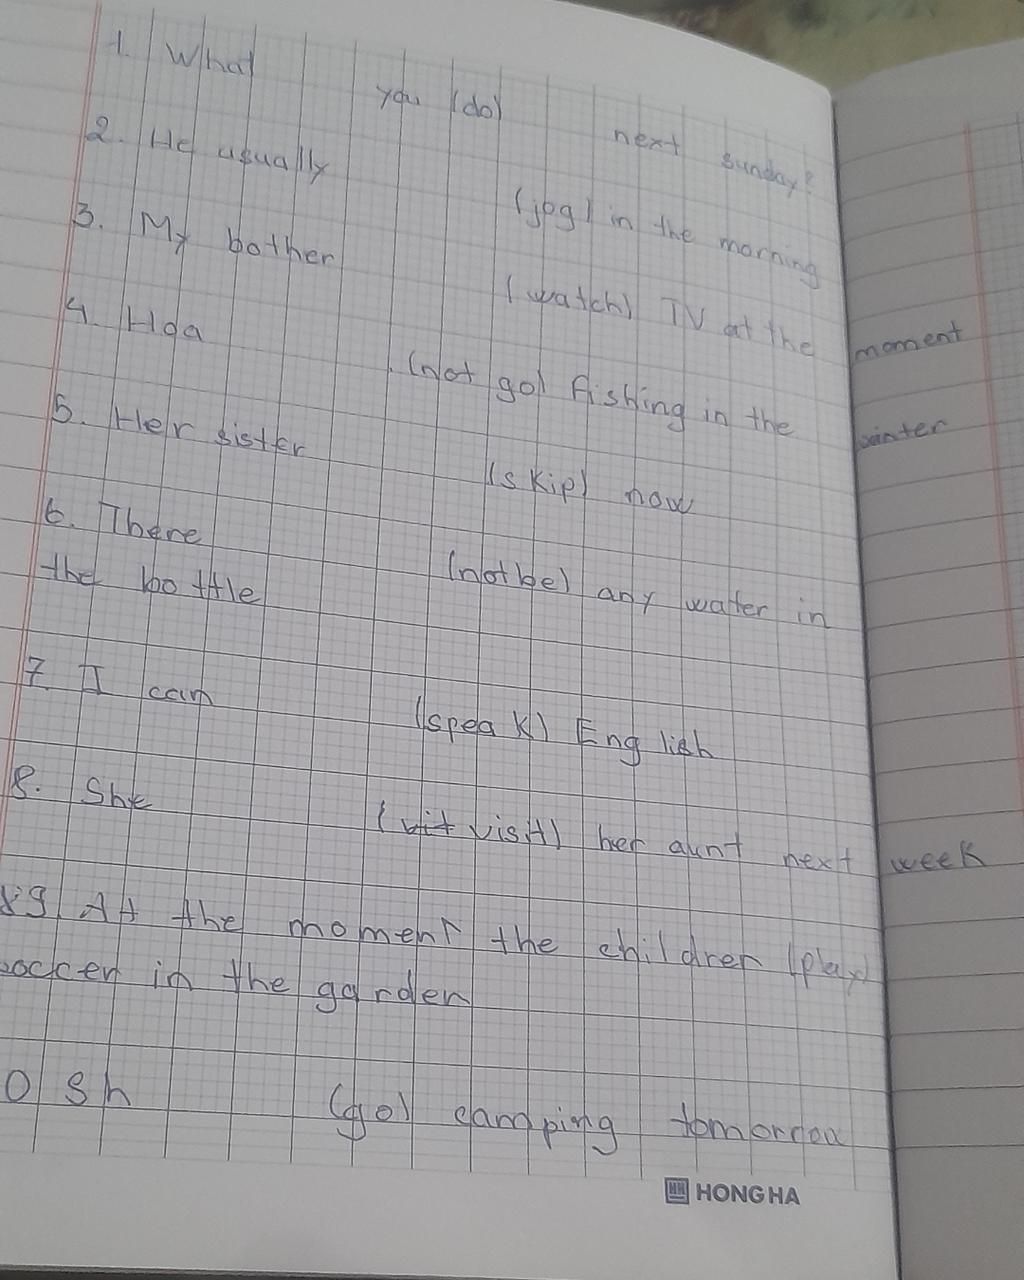 1. What you (do) next sunday?
2. He usually (jog) in the morning
3. My bother (watch) TV at the moment
4. Hoa (not go) fishing in the winter
5. Her sister (skip) now
6. There (not be) any water in
the bottle
7. I can (speak) English
8. She (visit) her aunt next week
9 At the moment the children (play)
soccer in the garden
0 Sh (go) camping tomorrow
HONG HA